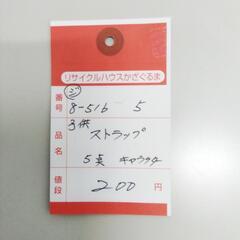 リサイクルハウスかざぐるま
番号 8-516 5
子供
品名 ストラップ
5点 キャラクター
値段 200円